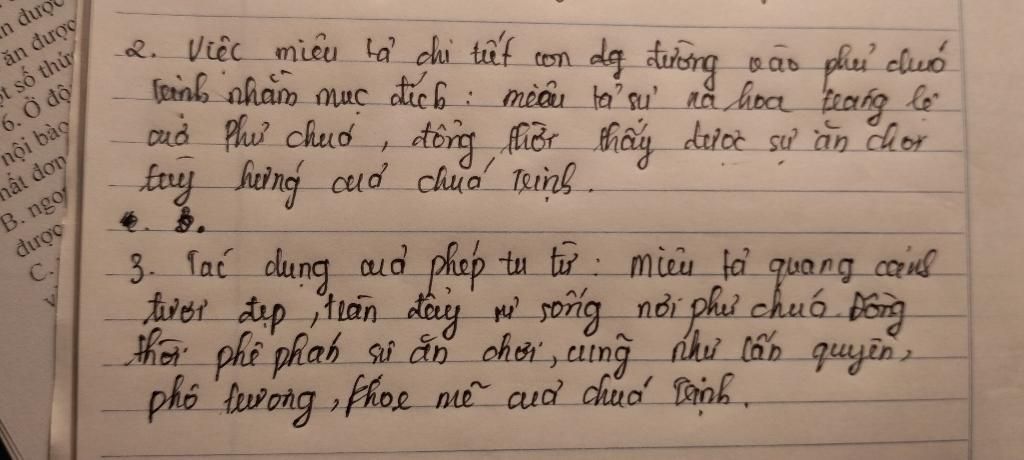 n được
ăn được
t số thứ
6. Ở độ
nội bào
nất đơn
B. ngo
được
C.
2. Việc miêu tả chi tiết con dg đường vào phủ chúa
Trịnh nhằm mục đích: miêu tả sự xa hoa tráng lệ
của Phủ chúa, đồng thời thấy được sự ăn chơi
tùy hứng của chúa Trịnh.
3. Tác dụng của phép tu từ: miêu tả quang cảnh
tươi đẹp, tràn đầy sự sống nơi phủ chúa. Đồng
thời phê phán sự ăn chơi, cũng như lấn quyền,
phô trương, khoe mẽ của chúa Trịnh.